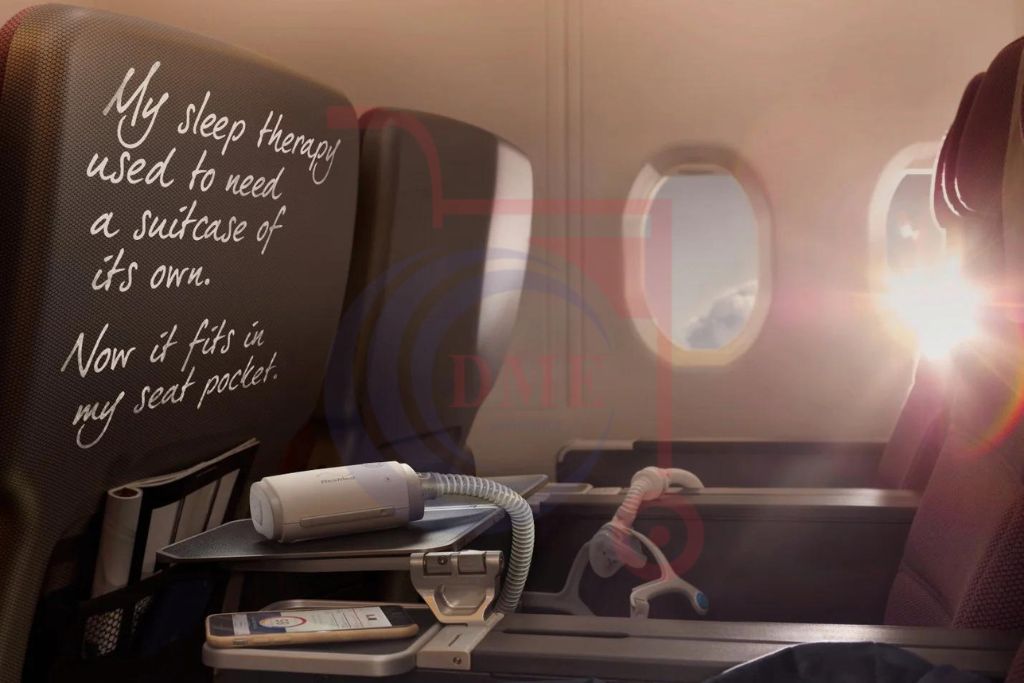 My sleep therapy
used to need
a suitcase of
its own.
Now it fits in
my seat pocket.
ResMed
DME